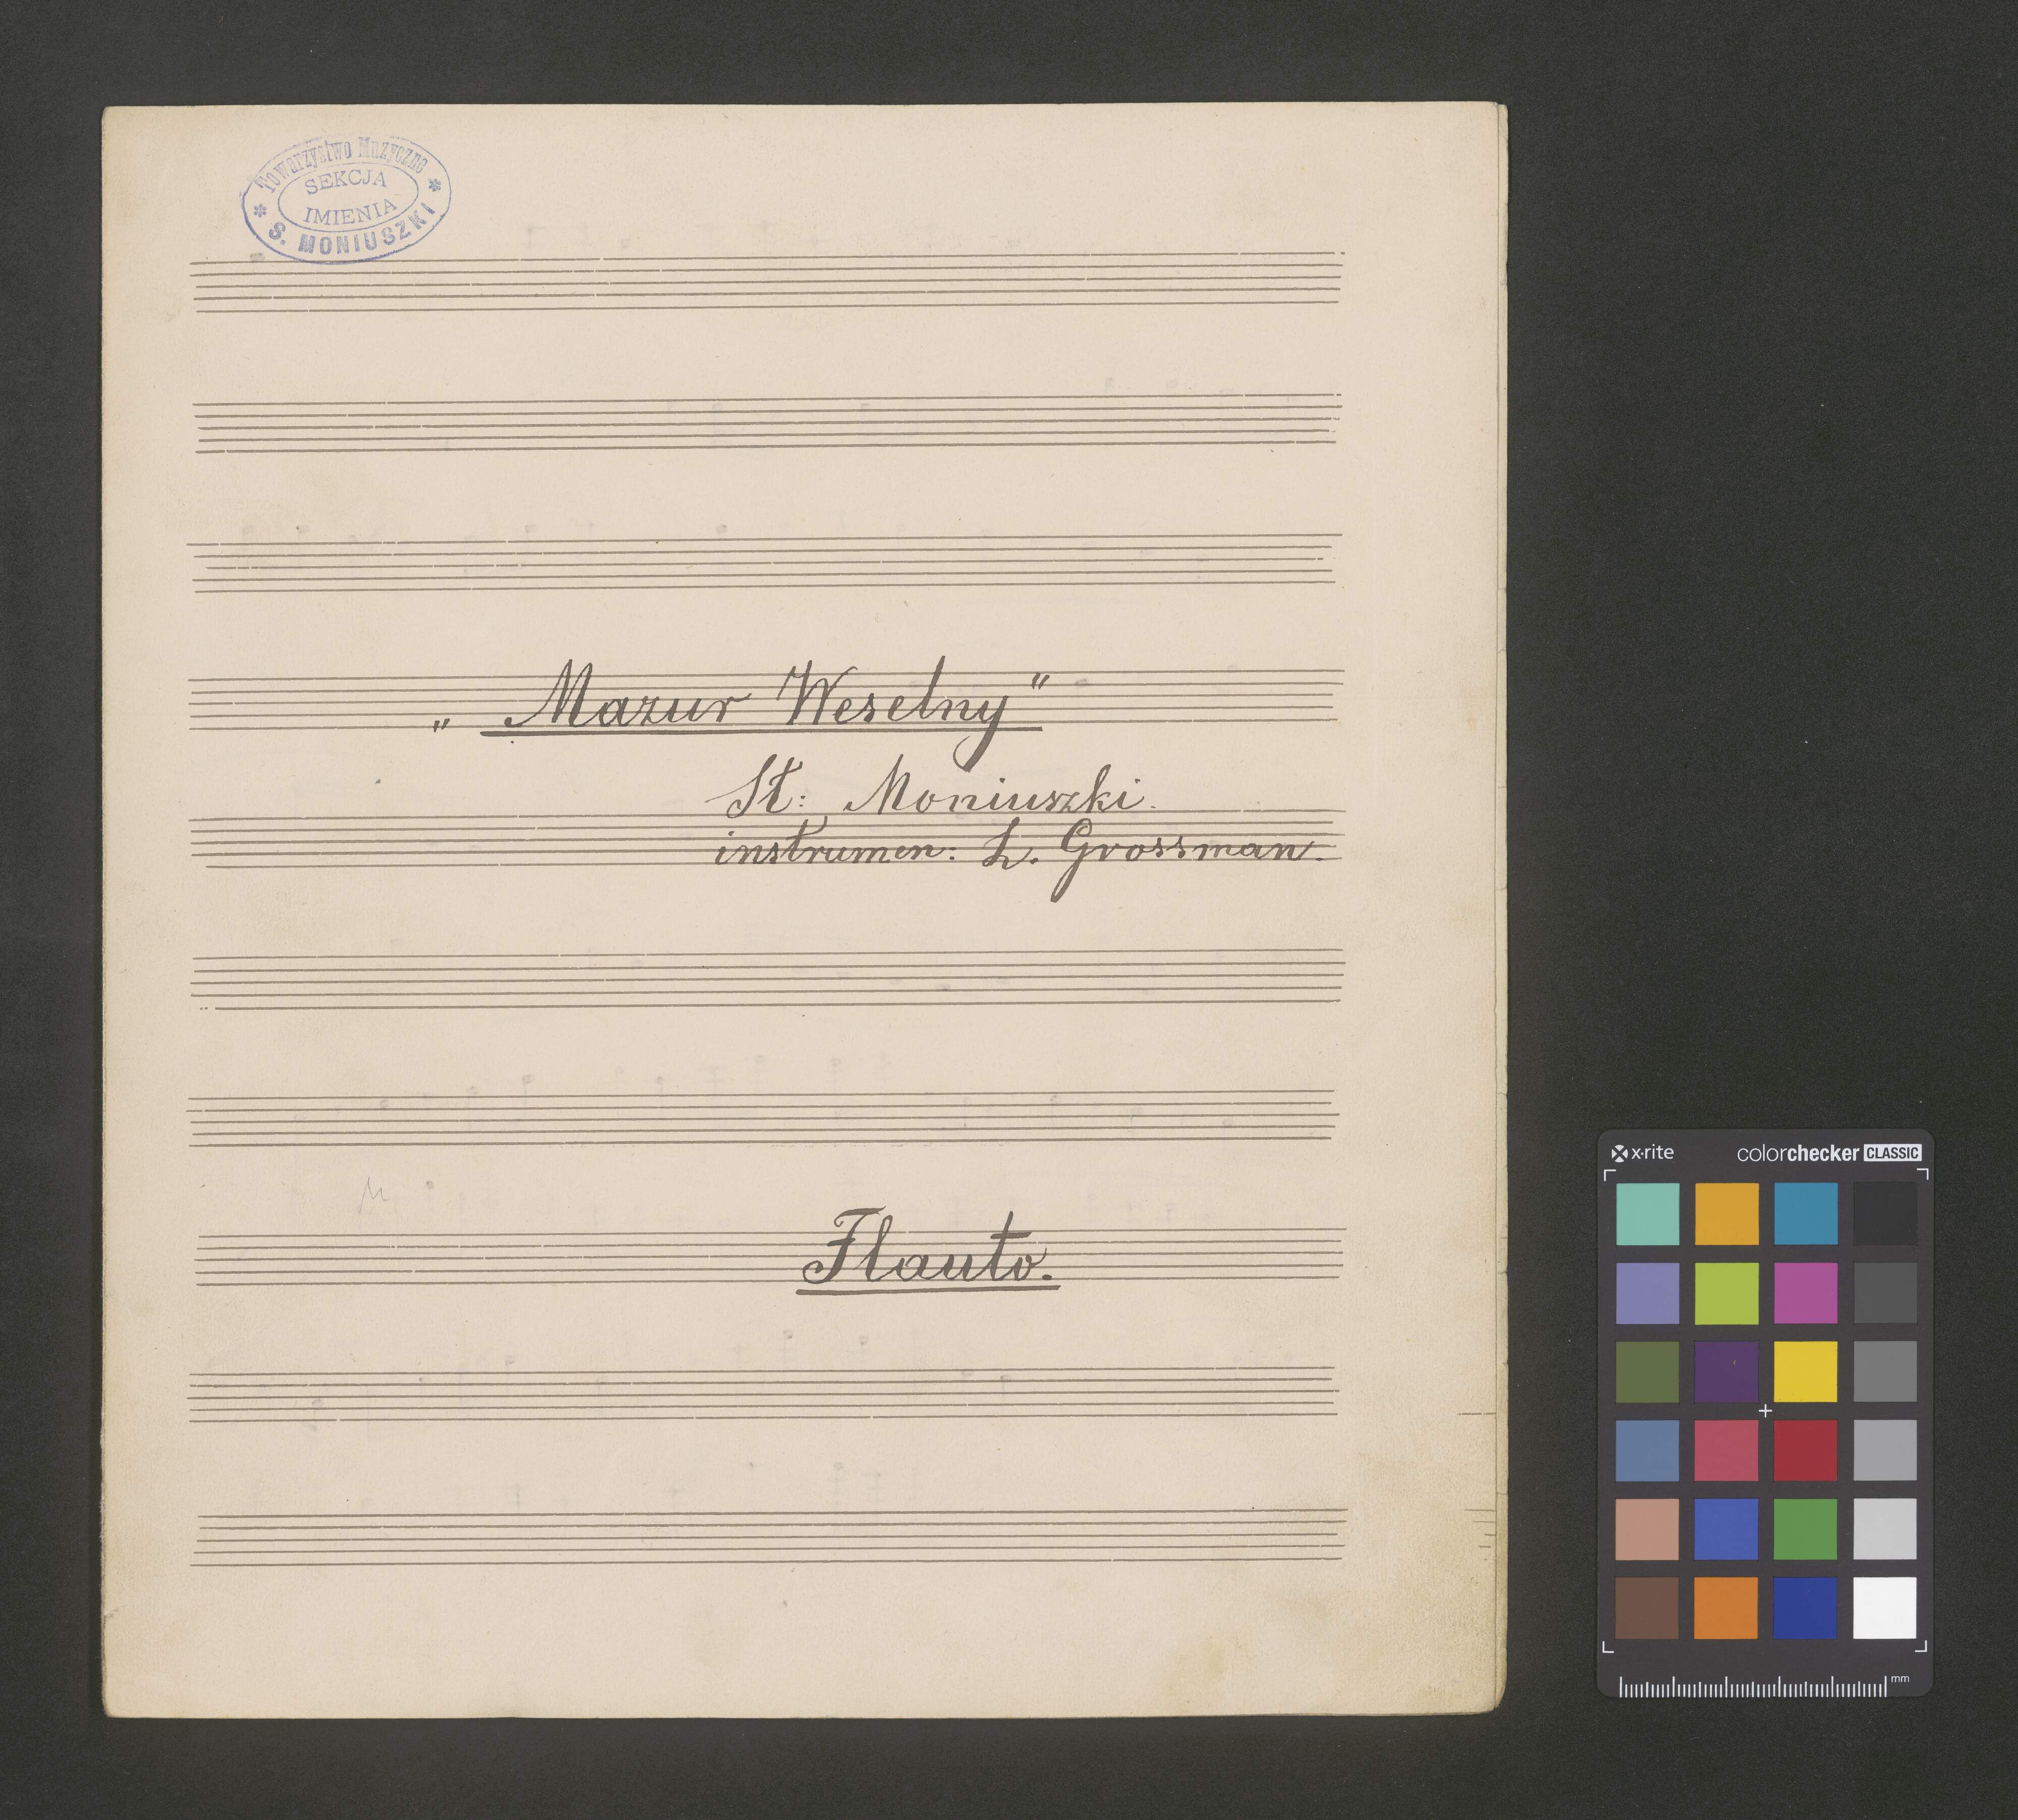 Towarzystwo Muzyczne
SEKCJA
IMIENIA
S. MONIUSZKI
„Mazur Weselny"
St: Moniuszki.
instrumen: L. Grossman.
Flauto.
x·rite colorchecker CLASSIC
mm